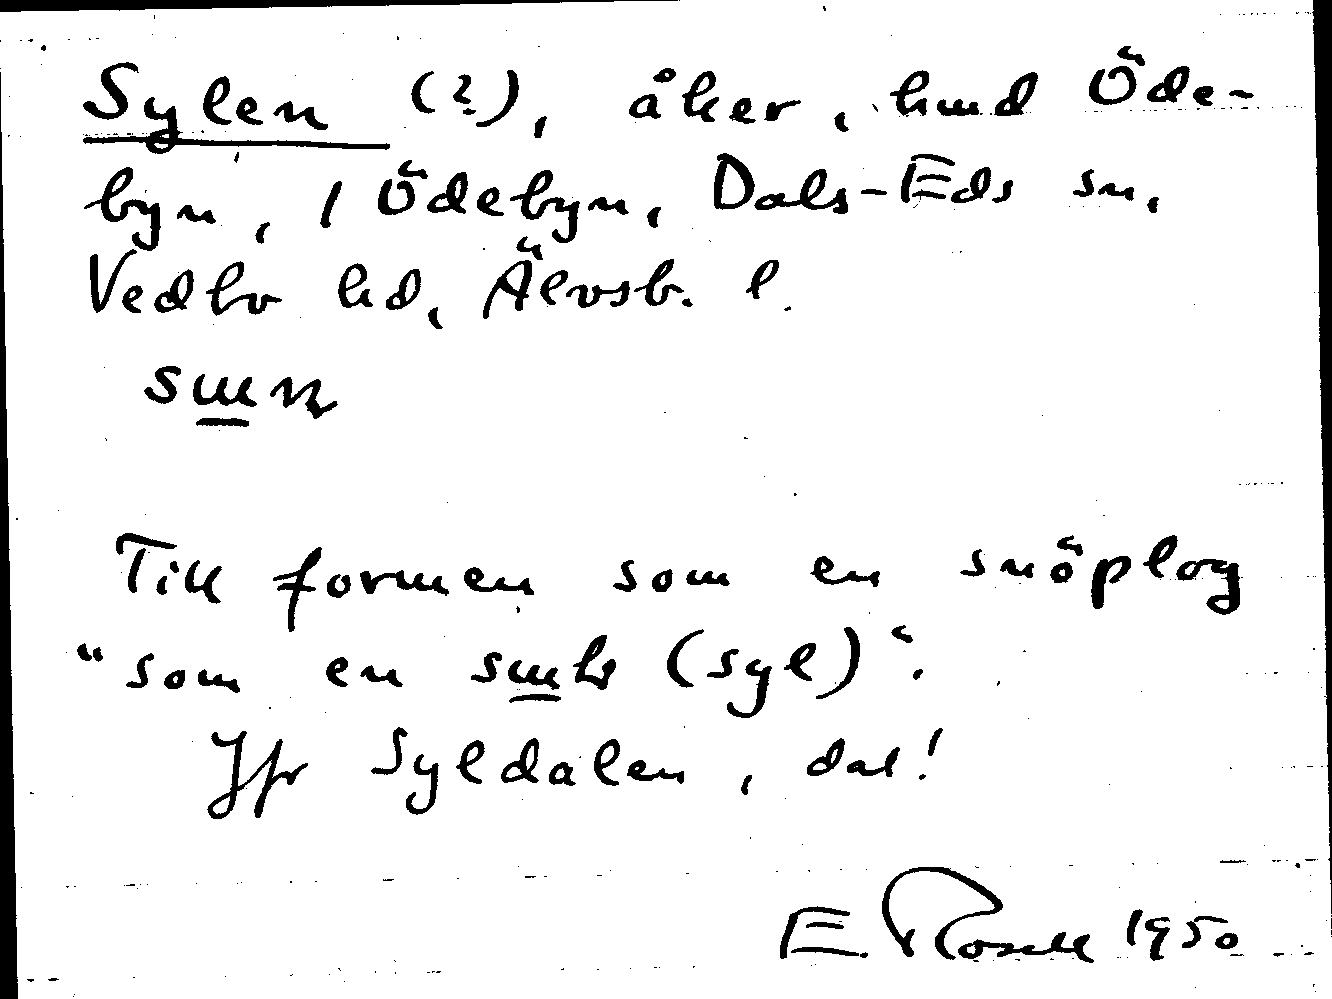 Sylen (?), åker, hmd Öde-
byn, 1 Ödebyn, Dals-Eds sn,
Vedbo hd, Älvsb. l.
Till formen som en snöplog
"som en (syl)".
Jfr Syldalen, dal!
E. Rosell 1950